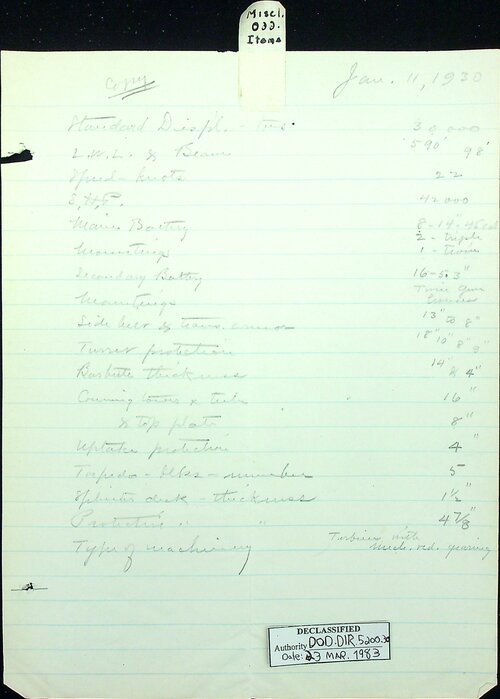 Miscl.
Odd.
Items
Copy
Jan. 11, 1930
Standard Displ. - tns. 30000
L.W.L. & Beam 590' 98'
Speed - knots 22
S.H.P. 42000
Main Battery 8-14"-45 cal
Mounting 2 - triple
1 - twin
Secondary Battery 16-5.3"
Mountings Twin Gun
Side belt & trans. armor 13" to 8"
Turret protection 18" 10" 8" 3"
Barbette thickness 14" & 4"
Conning tower & tube 16"
& top plate 8"
Uptake protection 4"
Torpedo - Blks - number 5
Splinter deck - thickness 1½"
Protective " " 4⅞"
Type of machinery Turbines with
Mech. red. gearing
DECLASSIFIED
Authority DOD.DIR.5200.30
Date: 23 MAR. 1983